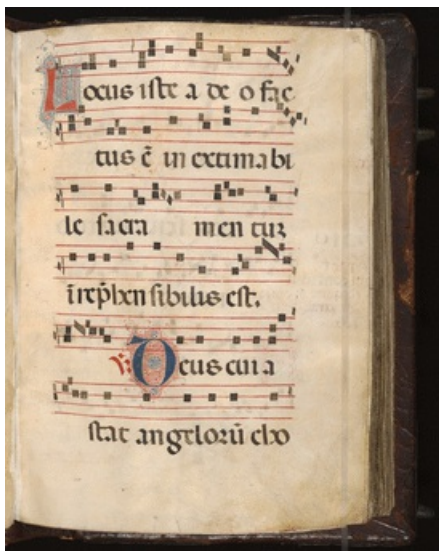 Locus iste a deo fac
tus ē in extimabi
le sacra men tuꝫ
īrep̄hen sibilis est.
℣. Deus cui a
stat angeloꝝū cho